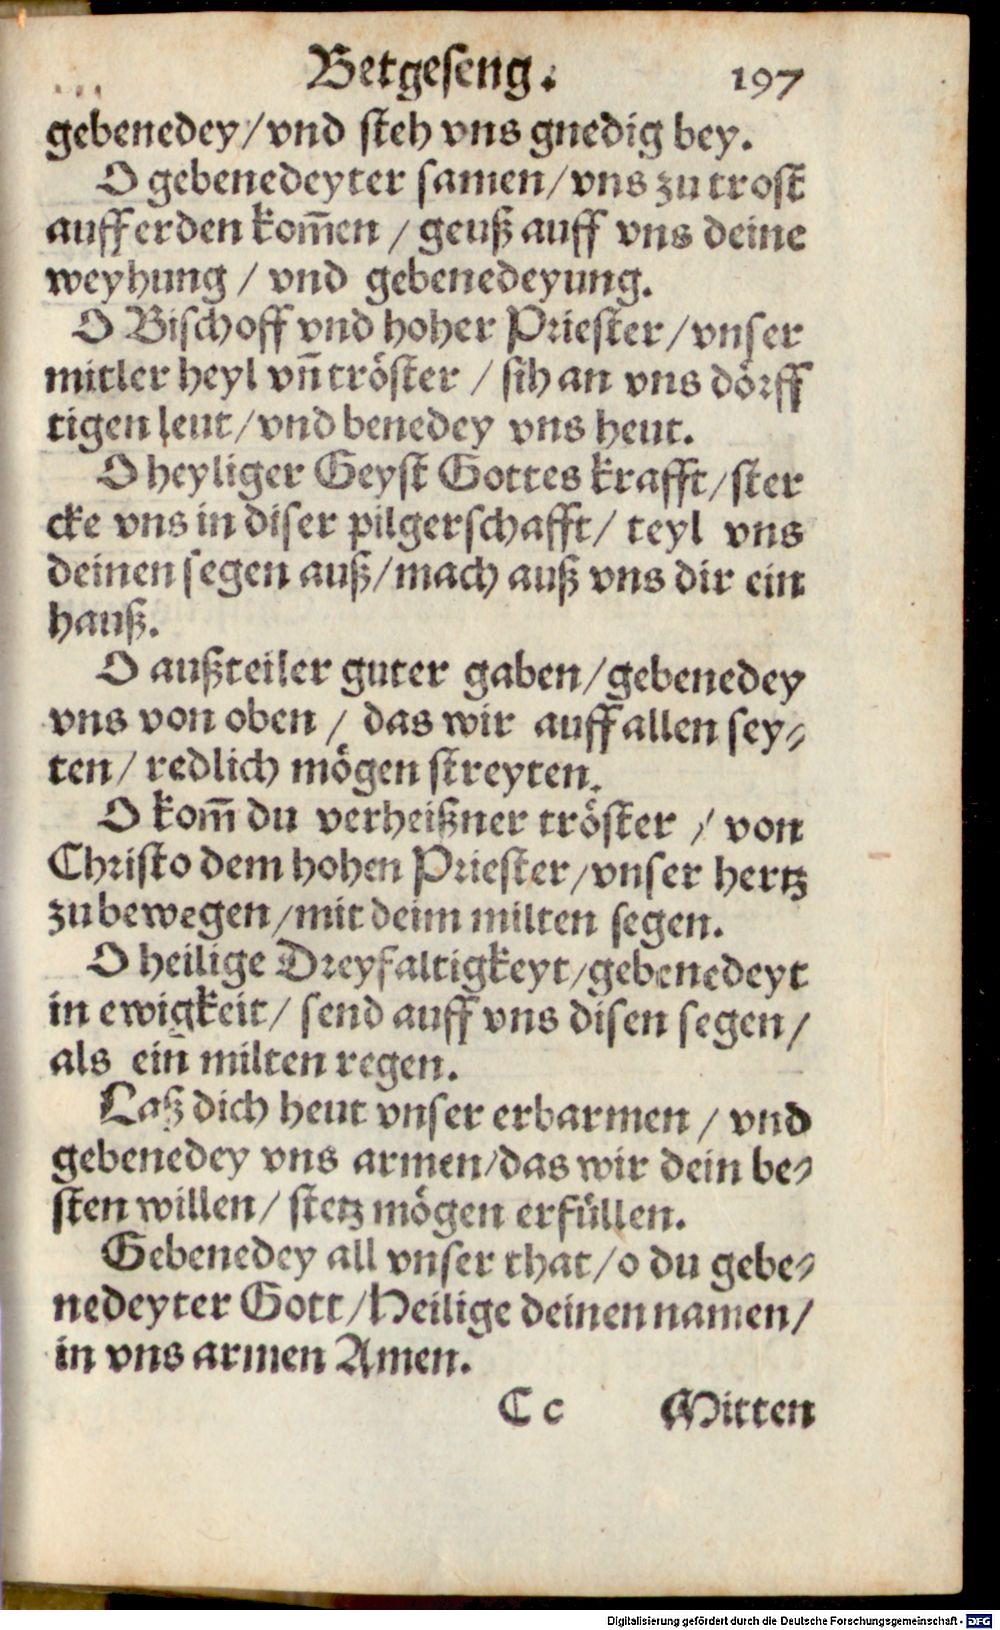 Betgeseng. 197
gebenedey/vnd steh vns gnedig bey.
O gebenedeyter samen/vns zu trost
auff erden kom̄en / geuß auff vns deine
weyhung / vnd gebenedeyung.
O Bischoff vnd hoher Priester/vnser
mitler heyl vn̄ tröster / sih an vns dörff
tigen leut/vnd benedey vns heut.
O heyliger Geyst Gottes krafft/ster
cke vns in diser pilgerschafft/ teyl vns
deinen segen auß/mach auß vns dir ein
hauß.
O außteiler guter gaben/gebenedey
vns von oben / das wir auff allen sey⸗
ten/ redlich mögen streyten.
O kom̄ du verheißner tröster / von
Christo dem hohen Priester/vnser hertz
zu bewegen/mit deim milten segen.
O heilige Dreyfaltigkeyt/gebenedeyt
in ewigkeit/ send auff vns disen segen/
als ein̄ milten regen.
Laß dich heut vnser erbarmen / vnd
gebenedey vns armen/das wir dein be⸗
sten willen/ stetz mögen erfüllen.
Gebenedey all vnser that/o du gebe⸗
nedeyter Gott/Heilige deinen namen/
in vns armen Amen.
C c Mitten
Digitalisierung gefördert durch die Deutsche Forschungsgemeinschaft - DFG